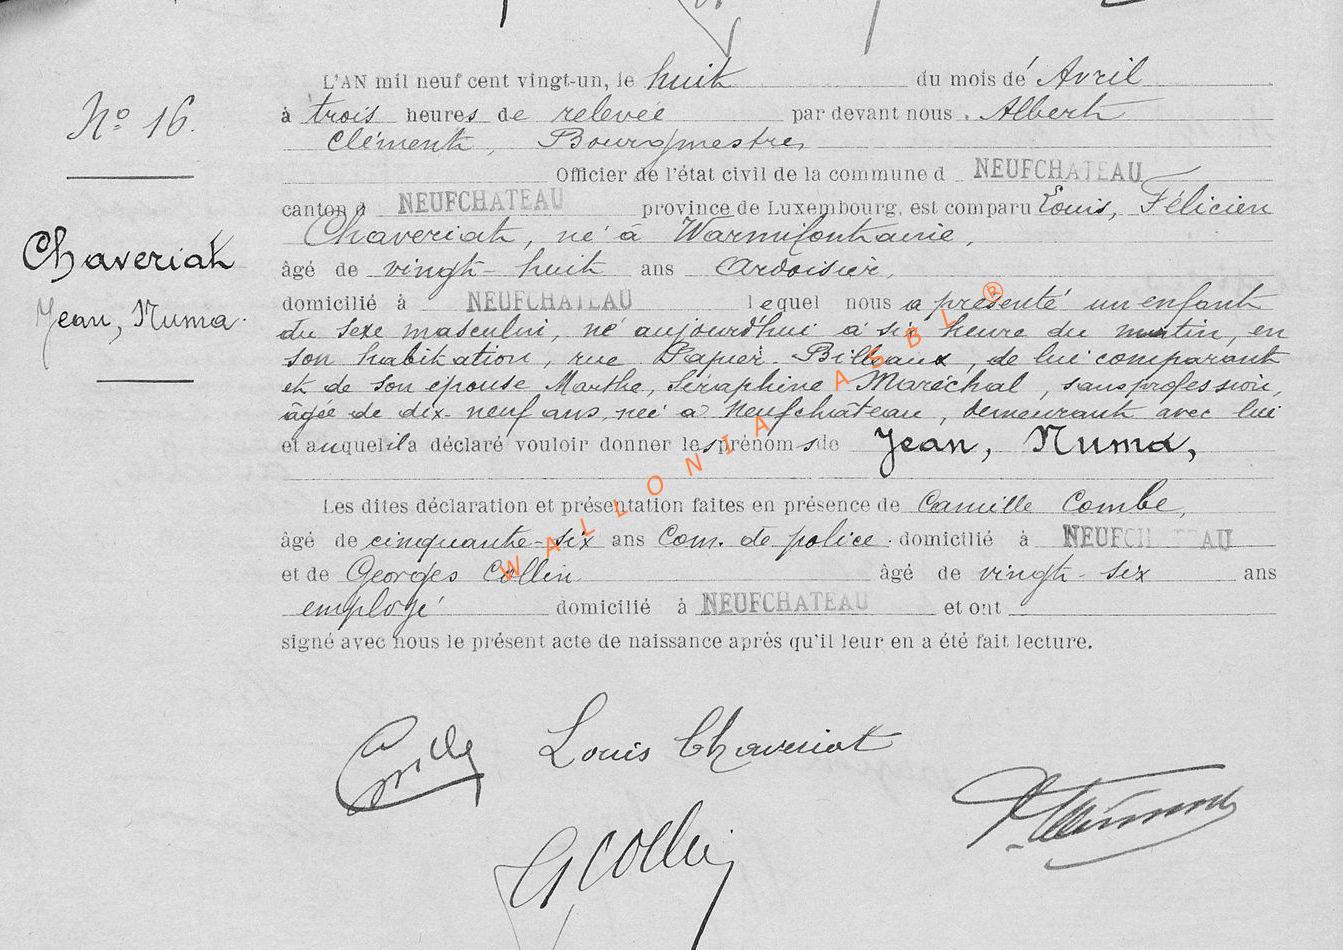 L'AN mil neuf cent vingt-un, le huit du mois de Avril
N° 16.
à trois heures de relevée par devant nous . Albert
Clément, Bourgmestre,
Officier de l'état civil de la commune d NEUFCHATEAU
canton d NEUFCHATEAU province de Luxembourg, est comparu Louis, Félicien
Chaveriat, né à Warmifontaine,
Chaveriat
âgé de vingt-huit ans ardoisier,
Jean, Numa.
domicilié à NEUFCHATEAU lequel nous a présenté un enfant
du sexe masculin, né aujourd'hui à six heure du matin, en
son habitation, rue Billeaux, de lui comparant
et de son épouse Marthe, Séraphine Maréchal, sans profession,
âgée de dix-neuf ans, née à Neufchâteau, demeurant avec lui
et auquel il a déclaré vouloir donner les prénoms de Jean, Numa,
Les dites déclaration et présentation faites en présence de Camille Combe,
âgé de cinquante-six ans Com. de police. domicilié à NEUFCHATEAU
et de Georges Collin âgé de vingt-six ans
employé domicilié à NEUFCHATEAU et ont
signé avec nous le présent acte de naissance après qu'il leur en a été fait lecture.
WALLONIA ASBL ®
Louis Chaveriat
G Collin